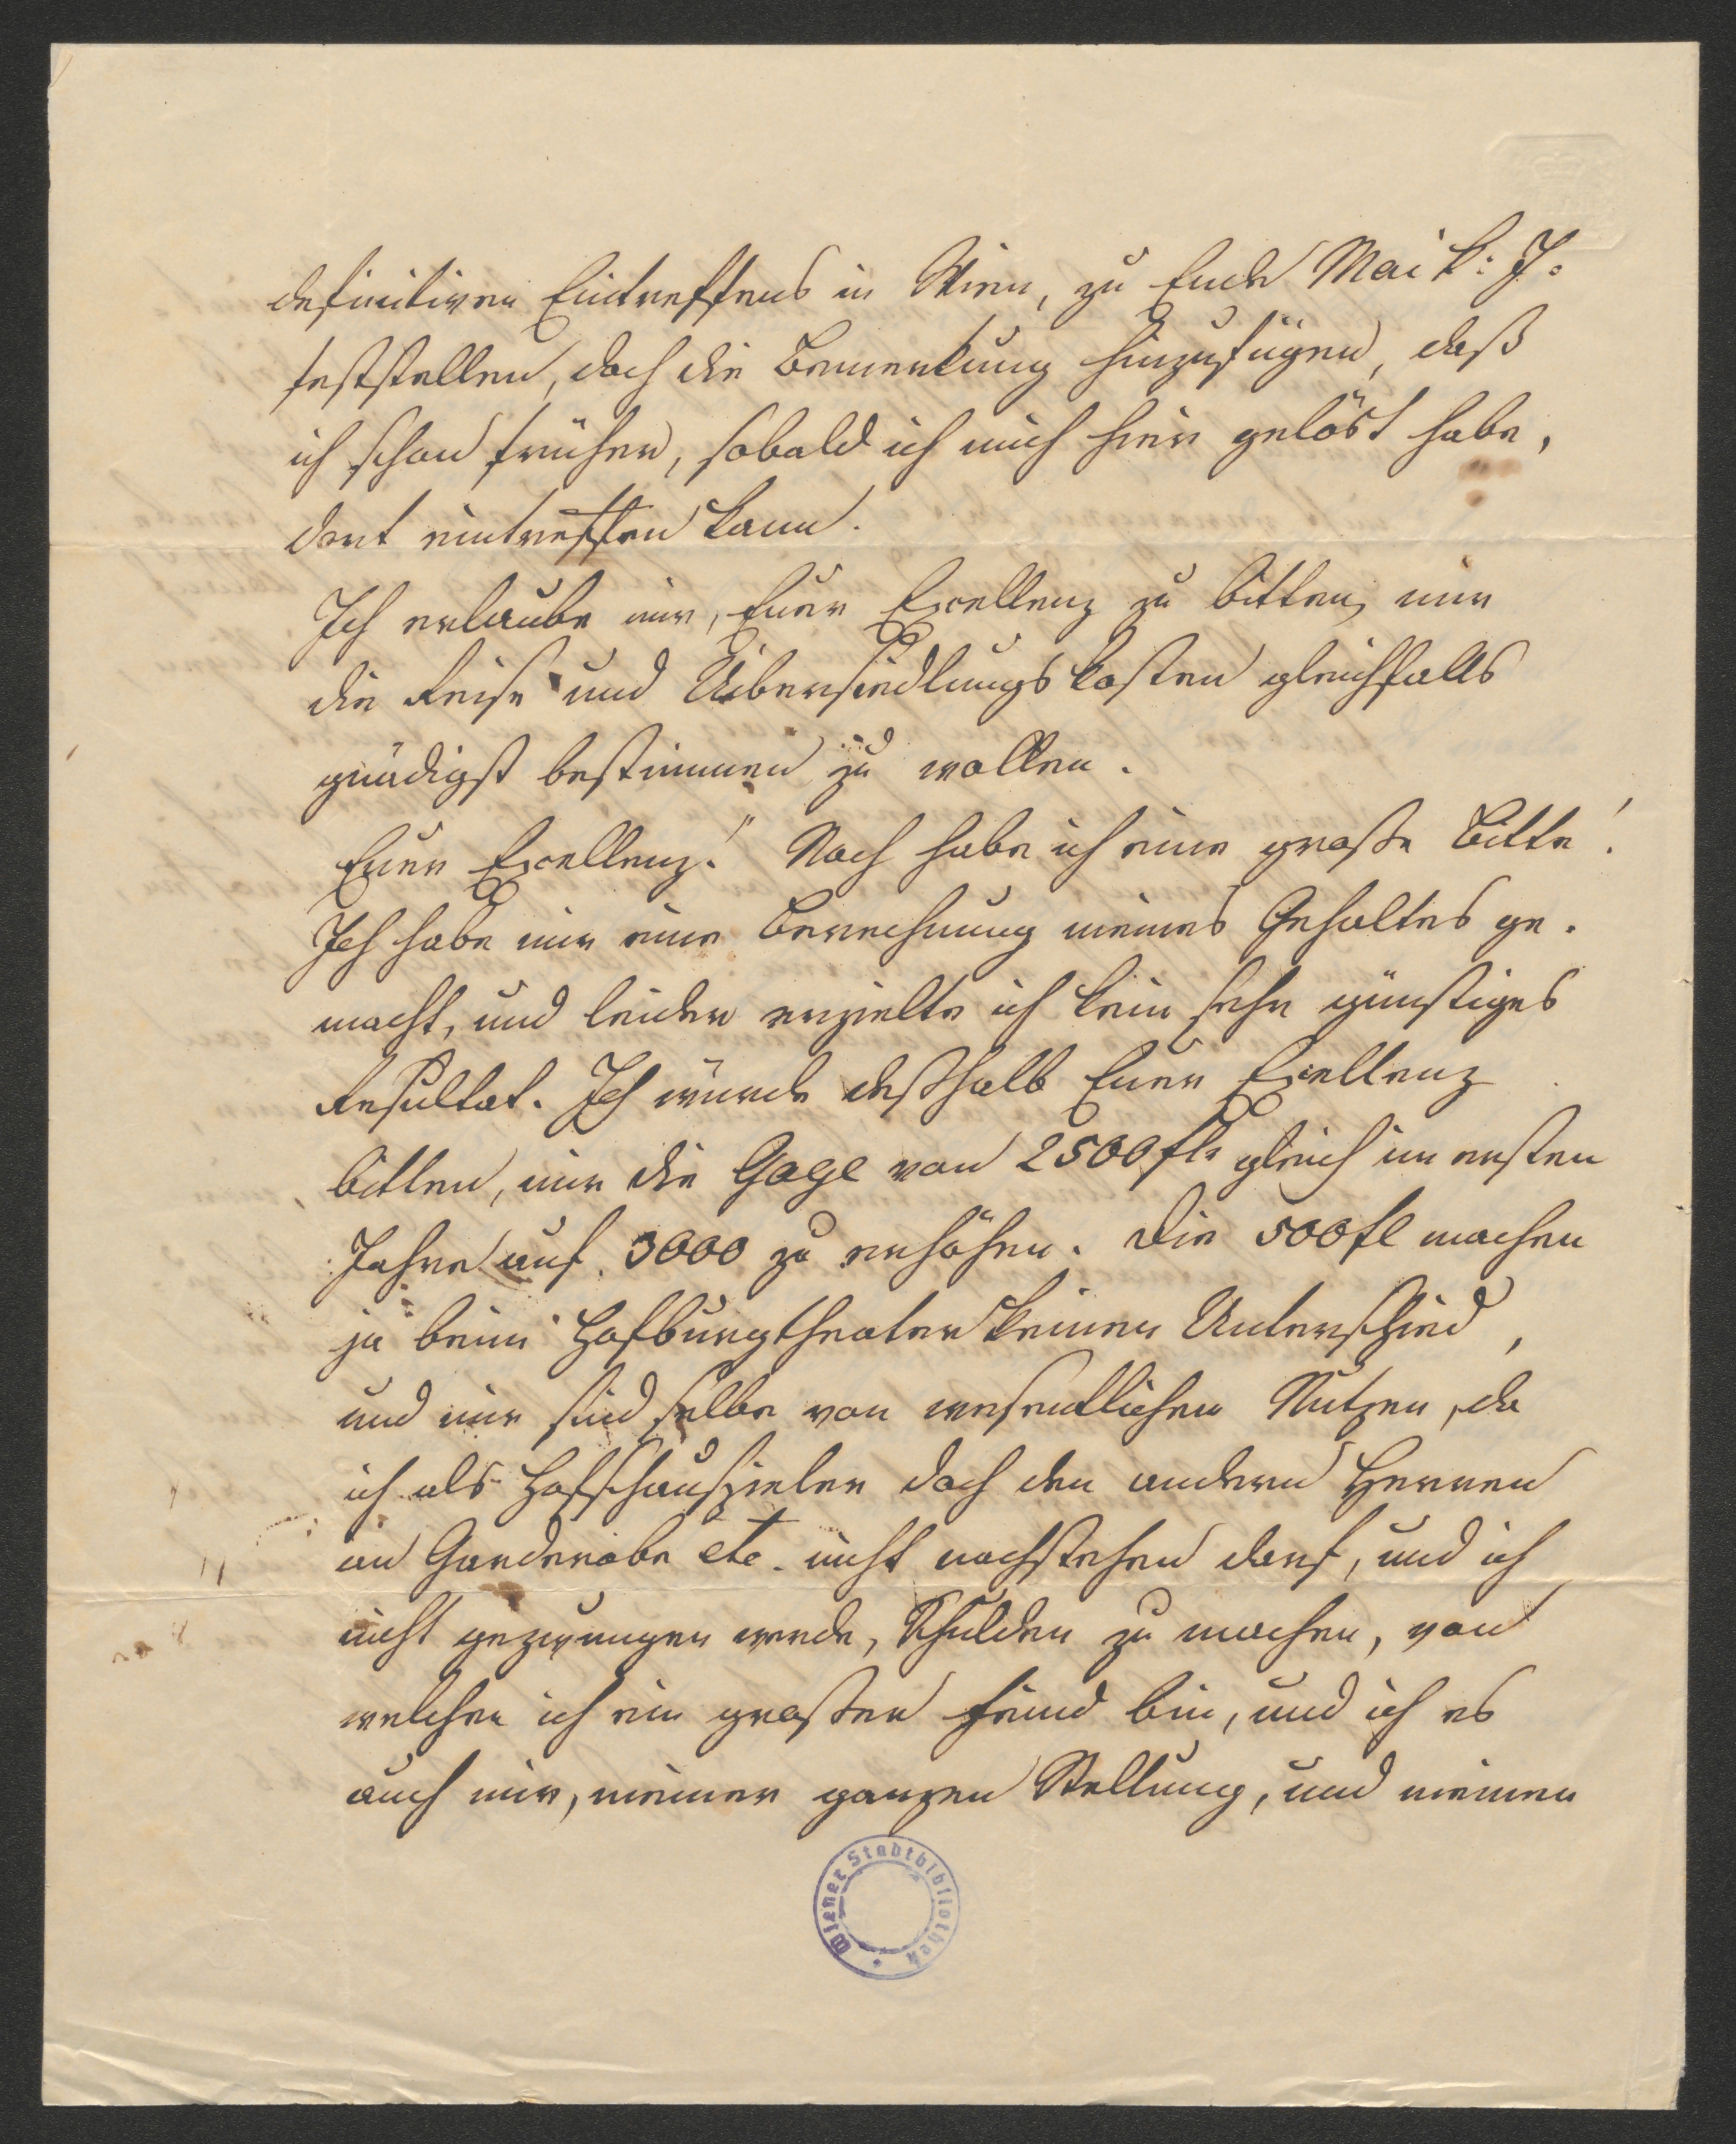 definitiven Eintreffens in Wien, zu Ende Mai k: J:
feststellen, doch die Bemerkung hinzufügen, daß
ich schon früher, sobald ich mich hier gelöst habe,
dort eintreffen kann.
Ich erlaube mir, Euer Excellenz zu bitten, mir
die Reise und Übersiedlungskosten gleichfalls
gnädigst bestimmen zu wollen.
Euer Excellenz! Noch habe ich eine große Bitte!
Ich habe mir eine Berechnung meines Gehaltes ge-
macht, und leider erzielte ich kein sehr günstiges
Resultat. Ich würde deßhalb Euer Excellenz
bitten, mir die Gage von 2500 fl. gleich im ersten
Jahre auf 3000 zu erhöhen. Die 500 fl machen
ja beim Hofburgtheater keinen Unterschied,
und mir sind selbe von wesentlichen Nutzen, da
ich als Hofschauspieler doch den andern Herren
an Garderobe etc. nicht nachstehen darf, und ich
nicht gezwungen werde, Schulden zu machen, von
welchen ich ein großer Feind bin, und ich es
auch mir, meiner ganzen Stellung, und meinen
Wiener Stadtbibliothek